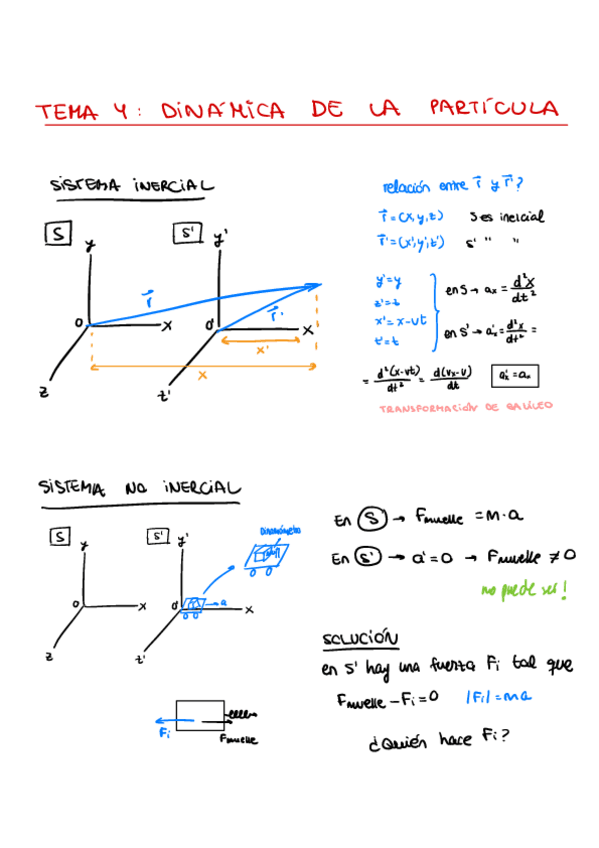 TEMA 4: DINÁMICA DE LA PARTÍCULA
SISTEMA INERCIAL
S
y
O
x
z
r⃗
S'
y'
O'
x
z'
r⃗'
x'
x
relación entre r⃗ y r⃗'?
r⃗ = (x,y,z) S es inercial
r⃗' = (x',y',z') S' " "
y' = y
z' = z
x' = x - vt
t' = t
en S → aₓ = d²x/dt²
en S' → a'ₓ = d²x'/dt² =
= d²(x-vt)/dt² = d(vₓ-v)/dt a'ₓ = aₓ
TRANSFORMACIÓN DE GALILEO
SISTEMA NO INERCIAL
S
y
O
x
z
S'
y'
O'
a
x
z'
Dinamómetro
En S → Fmuelle = m·a
En S' → a' = 0 → Fmuelle ≠ 0
no puede ser!
SOLUCIÓN
en S' hay una fuerza Fi tal que
Fmuelle - Fi = 0 |Fi| = ma
¿Quién hace Fi?
Fi
Fmuelle